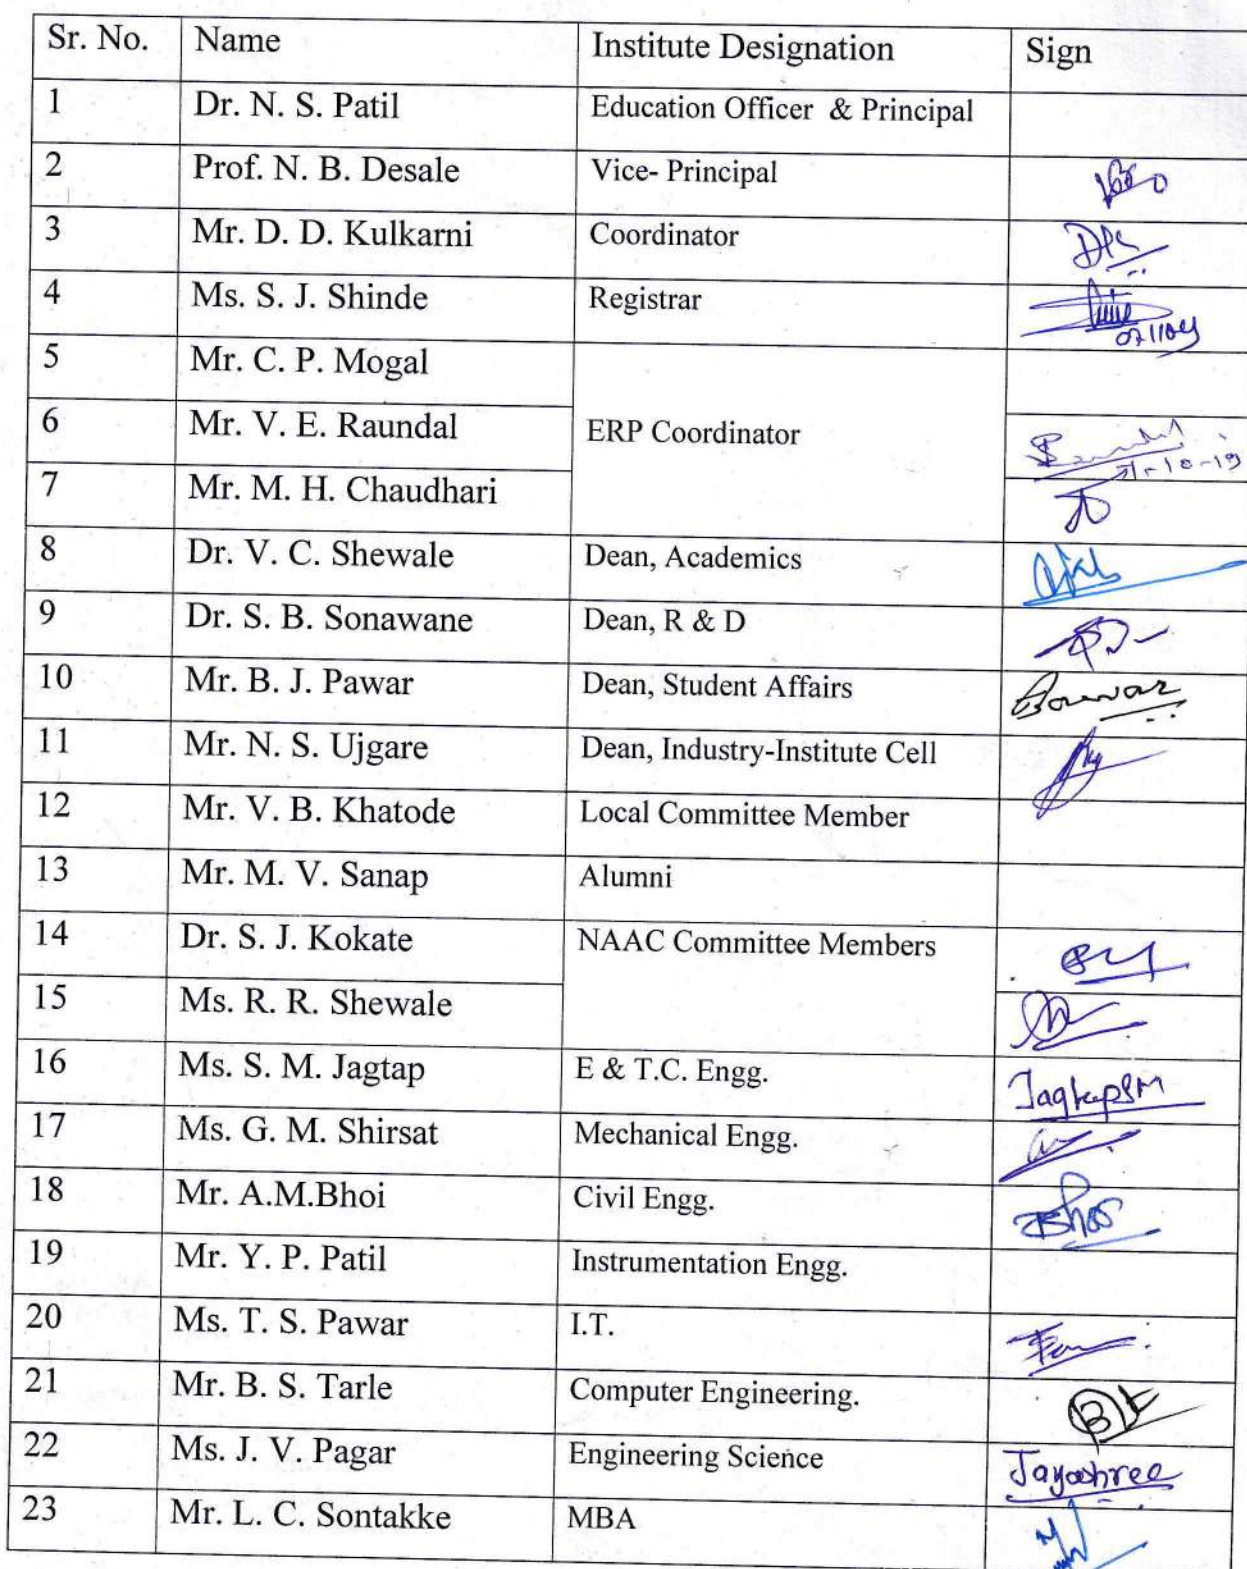 Sr. No. Name Institute Designation Sign
1 Dr. N. S. Patil Education Officer & Principal
2 Prof. N. B. Desale Vice- Principal
3 Mr. D. D. Kulkarni Coordinator
4 Ms. S. J. Shinde Registrar
5 Mr. C. P. Mogal
6 Mr. V. E. Raundal ERP Coordinator
7 Mr. M. H. Chaudhari
8 Dr. V. C. Shewale Dean, Academics
9 Dr. S. B. Sonawane Dean, R & D
10 Mr. B. J. Pawar Dean, Student Affairs
11 Mr. N. S. Ujgare Dean, Industry-Institute Cell
12 Mr. V. B. Khatode Local Committee Member
13 Mr. M. V. Sanap Alumni
14 Dr. S. J. Kokate NAAC Committee Members
15 Ms. R. R. Shewale
16 Ms. S. M. Jagtap E & T.C. Engg. JagtapSM
17 Ms. G. M. Shirsat Mechanical Engg.
18 Mr. A.M.Bhoi Civil Engg.
19 Mr. Y. P. Patil Instrumentation Engg.
20 Ms. T. S. Pawar I.T.
21 Mr. B. S. Tarle Computer Engineering.
22 Ms. J. V. Pagar Engineering Science Jayashree
23 Mr. L. C. Sontakke MBA